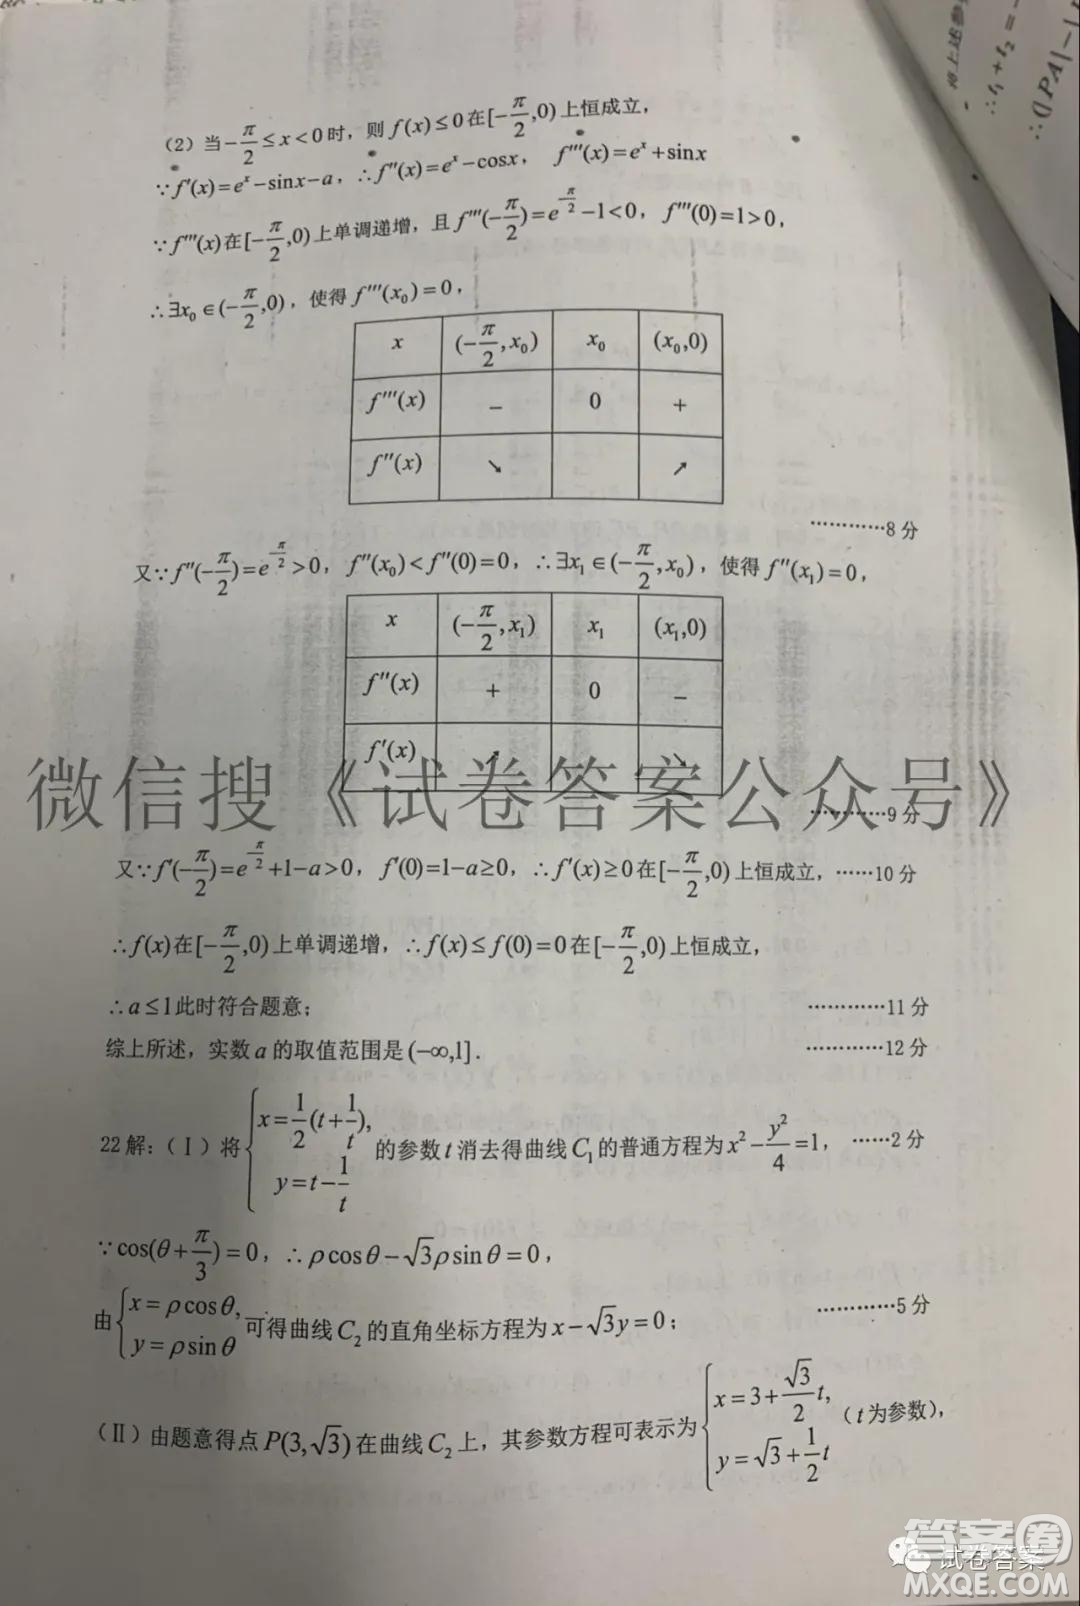 得上述参
∴t₁+t₂=-
∴(|PA|-|
(2)当-π/2≤x<0时，则f(x)≤0在[-π/2,0)上恒成立，
∵f′(x)=eˣ-sinx-a，∴f″(x)=eˣ-cosx， f‴(x)=eˣ+sinx
∵f‴(x)在[-π/2,0)上单调递增，且f‴(-π/2)=e^(-π/2)-1<0，f‴(0)=1>0，
∴∃x₀∈(-π/2,0)，使得f‴(x₀)=0，
x (-π/2,x₀) x₀ (x₀,0)
f‴(x) − 0 +
f″(x) ↘ ↗
…………8分
又∵f″(-π/2)=e^(-π/2)>0，f″(x₀)<f″(0)=0，∴∃x₁∈(-π/2,x₀)，使得f″(x₁)=0，
x (-π/2,x₁) x₁ (x₁,0)
f″(x) + 0 −
f′(x) ↗ ↘
微信搜《试卷答案公众号》
…………9分
又∵f′(-π/2)=e^(-π/2)+1-a>0，f′(0)=1-a≥0，∴f′(x)≥0在[-π/2,0)上恒成立，……10分
∴f(x)在[-π/2,0)上单调递增，∴f(x)≤f(0)=0在[-π/2,0)上恒成立，
∴a≤1此时符合题意； …………11分
综上所述，实数a的取值范围是(-∞,1]. …………12分
22解：(Ⅰ)将{x=1/2(t+1/t), y=t-1/t 的参数t消去得曲线C₁的普通方程为x²-y²/4=1，……2分
∵cos(θ+π/3)=0，∴ρcosθ-√3ρsinθ=0，
由{x=ρcosθ, y=ρsinθ 可得曲线C₂的直角坐标方程为x-√3y=0； …………5分
(Ⅱ)由题意得点P(3,√3)在曲线C₂上，其参数方程可表示为{x=3+√3/2t, y=√3+1/2t (t为参数)，
答案圈
试卷答案
MXQE.COM